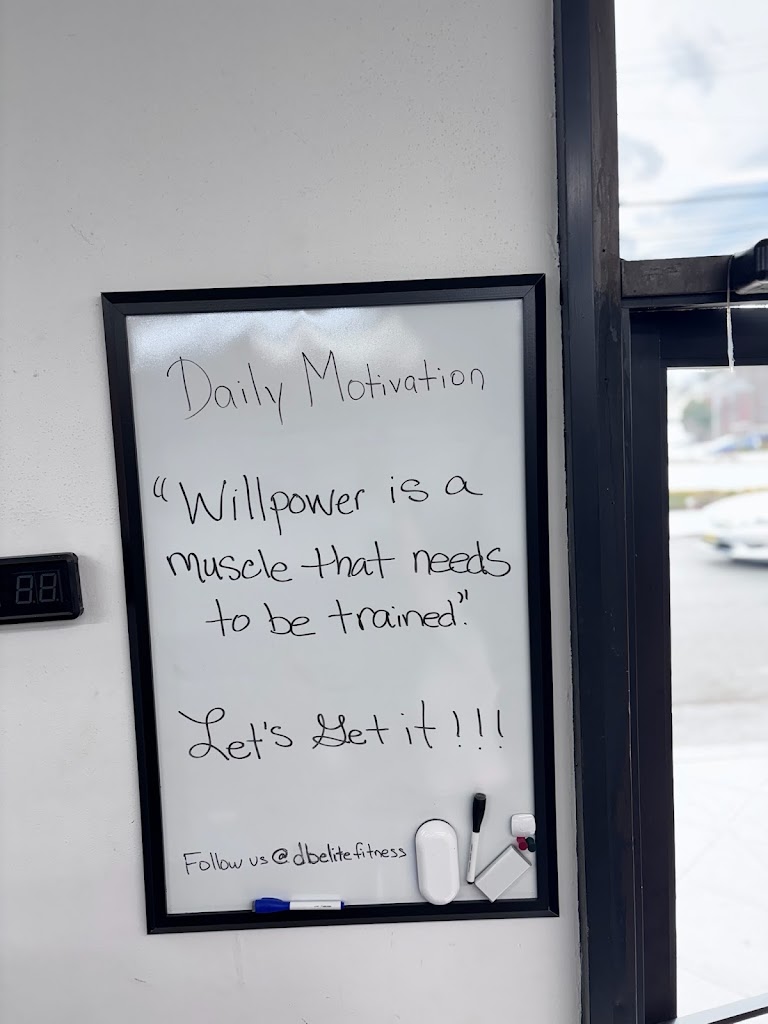 Daily Motivation
“Willpower is a
muscle that needs
to be trained”.
Let's Get it!!!
Follow us @dbelitefitness
88